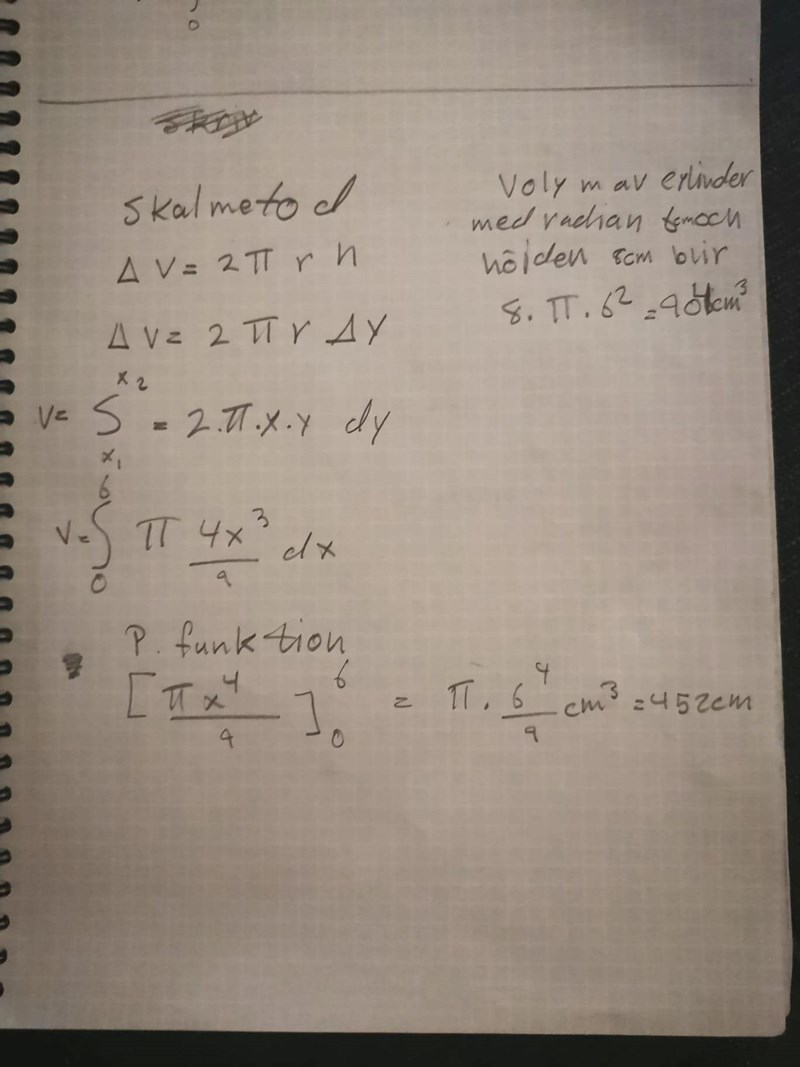 0
Skalmetod
ΔV = 2π r h
ΔV = 2πr Δy
V= ∫ x₁ x₂ = 2.π.x.y dy
V= ∫ 0 6 π 4x³/9 dx
P. funktion
[πx⁴/9]₀⁶ = π. 6⁴/9 cm³ = 452cm
Volym av
med radian
höjden 8cm blir
8. π. 6² = 904cm³